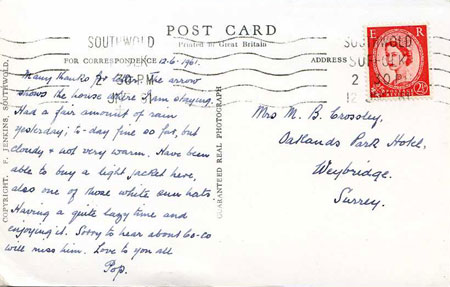 POST CARD
Printed in Great Britain
FOR CORRESPONDENCE
ADDRESS
SOUTHWOLD
SOUTHWOLD
SUFFOLK
E R
2½D
12.6.1961.
Many thanks for letter. The arrow
shows the house where I am staying.
Had a fair amount of rain
yesterday; to-day fine so far, but
cloudy & not very warm. Have been
able to buy a light jacket here,
also one of those white sun hats.
Having a quite lazy time and
enjoying it. Sorry to hear about Co-Co
will miss him. Love to you all
Pop.
Mrs M. B. Crossley,
Oatlands Park Hotel,
Weybridge.
Surrey.
COPYRIGHT, F. JENKINS, SOUTHWOLD.
GUARANTEED REAL PHOTOGRAPH